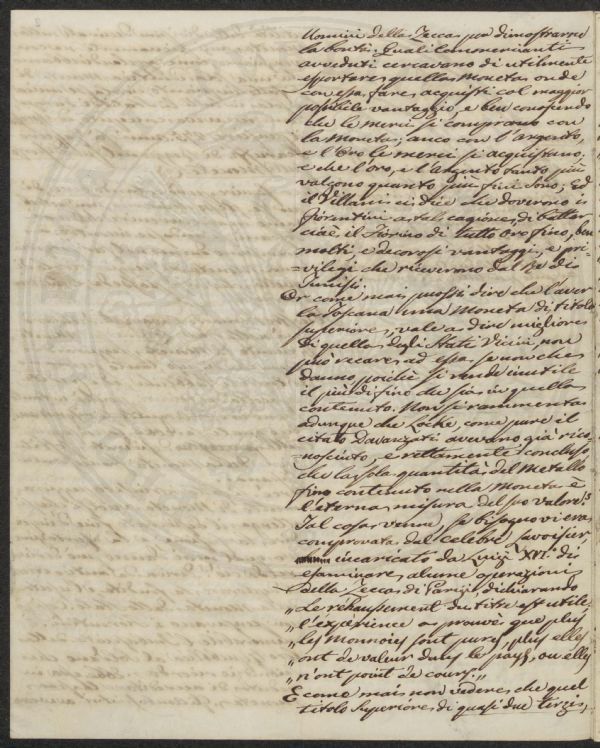 Uomini della Zecca per dimostrarne
la bontà. Quali Commercianti
avveduti cercavano di utilmente
esportare quella Moneta onde
con essa fare acquisti col maggior
possibile vantaggio, e ben conoscendo
che le merci si comprano con
la Moneta; anco con l'Argento,
e l'Oro le merci si acquistano,
e che l'oro, e l'Argento tanto più
valgono quanto più fini sono; Ed
il Villani ci dice che doverono i
Fiorentini a tal cagione, di batter
cioè il Fiorino di tutto oro fino, ben
molti, e decorosi vantaggi, e pri-
=vilegi che riceverono dal Re di
Tunisi.
Or come mai puossi dire che l'aver
la Toscana una Moneta di titolo
superiore, vale a dire migliore
di quella degli Stati Vicini, non
può recare ad essa se non che
danno, poichè si rende inutile
il più di fino che sia in quella
contenuto. Non si rammenta
adunque che Locke, come pure il
citato Davanzati avevano già rico-
=nosciuto, e rettamente concluso,
che la sola quantità del Metallo
fino contenuto nella Moneta è
l'eterna misura del suo valore?
Tal cosa venne, se bisogno vi era
comprovata dal celebre Lavoisier
incaricato da Luigi XVI.° di
esaminare alcune operazioni
della Zecca di Parigi, dichiarando
„Le réhaussement du titre est utile,
„l'expérience a prouvè que plus
„les Monnoies sont pures, plus elles
„ont de valeur dans le pays, ou elles
„n'ont point de cours.„
E come mai non vedere che quel
titolo superiore di quasi due terzi,